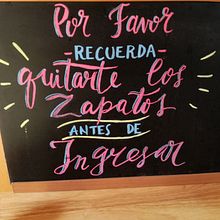 Por Favor
- RECUERDA -
quitarte los
Zapatos
ANTES DE
Ingresar